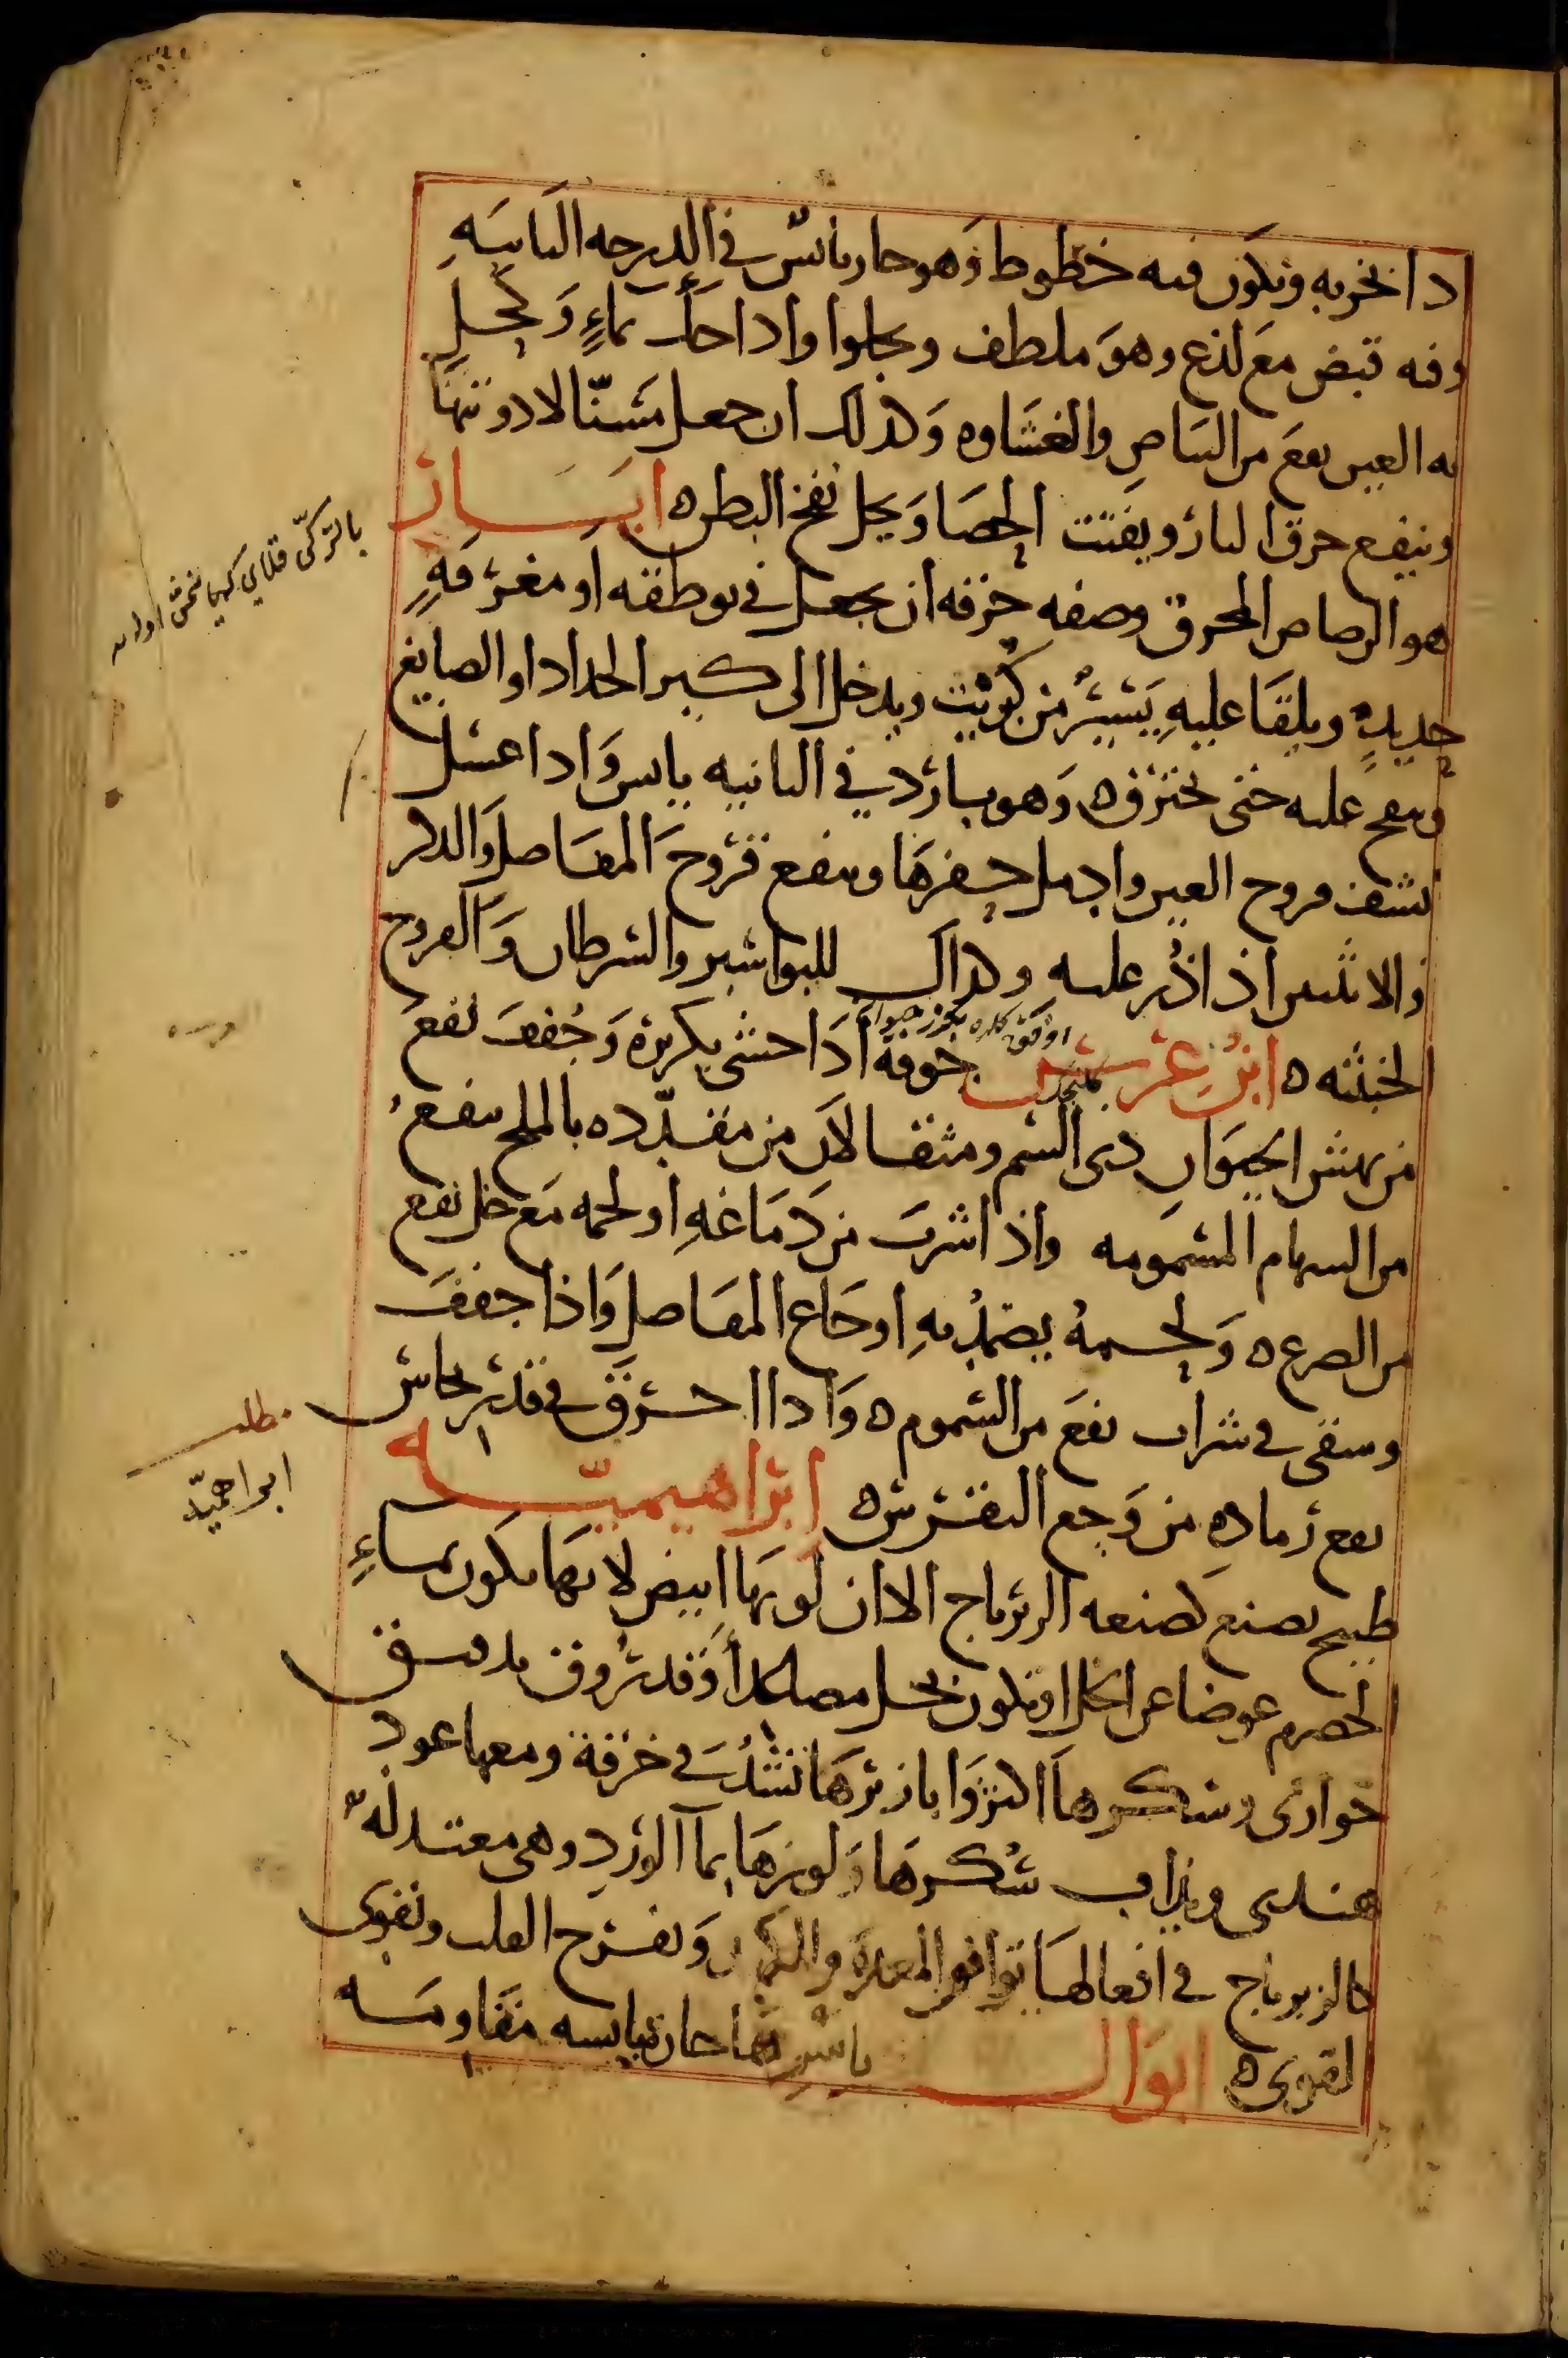 اذا بخر به ويكون فيه خطوط وهو حار يابس في الدرجه الثانيه
وفيه قبض مع لذع وهو ملطف ويجلوا واذا حك بماءٍ وكحل
به العين نفع من البياض والغشاوه وكذلك ان جعل مسنّا لادويتها
وينفع حرق النار ويفتت الحصا ويحل نفخ البطن ه ابسار
هو الرصاص المحرق وصفه حرقه ان يجعل في بوطقه او مغرفةٍ
حديدٍ ويلقا عليهِ يَسيرٌ من كبريت ويدخل الى كير الحداد او الصايغ
وينفخ عليه حتى يحترق ه وهو بارد في الثانيه يابس واذا غسل
نشف قروح العين وادمل حفرها وينفع قروح المفاصل والذكر
والانثيين اذا ذر عليه وكذلك للبواسير والسرطان والقروح
الخبيثه ه ابن عرس جوفه اذا حشى بكزبرة وجُفف نفع
من نهش الحيوان ذى السم ومثقالان من مقدّده بالملح ينفع
من السهام المسمومه واذا شرب من دماغهِ او لحمه مع خل نفع
من الصرع ه ولحمهُ يضمد بهِ اوجاع المفاصل واذا جفف
وسقى في شراب نفع من السموم ه واذا احترق في قدر نحاس
نفع رماده من وجع النقرس ه ابراهيميّه
طبيخ يصنع كصنعه الزيرباج الا ان لونها ابيض لانها تكون بماءِ
الحصرم عوضا عن الخل او تكون بخل مصاعد او قد رُوق بدقيق
حوارى وسكرها اكثر وابازيرها تشدُ في خرقة ومعها عود
هندى ويذاب سكرها ولوزها بما الورد وهى معتدلهٌ
كالزيرباج في افعالها توافق المعده والكبد وتفرح القلب وتقوى
القوى ه ابوال باسرها حاره يابسه مقاومته
بالتركى قلاى
مطلب
ابراهميّه